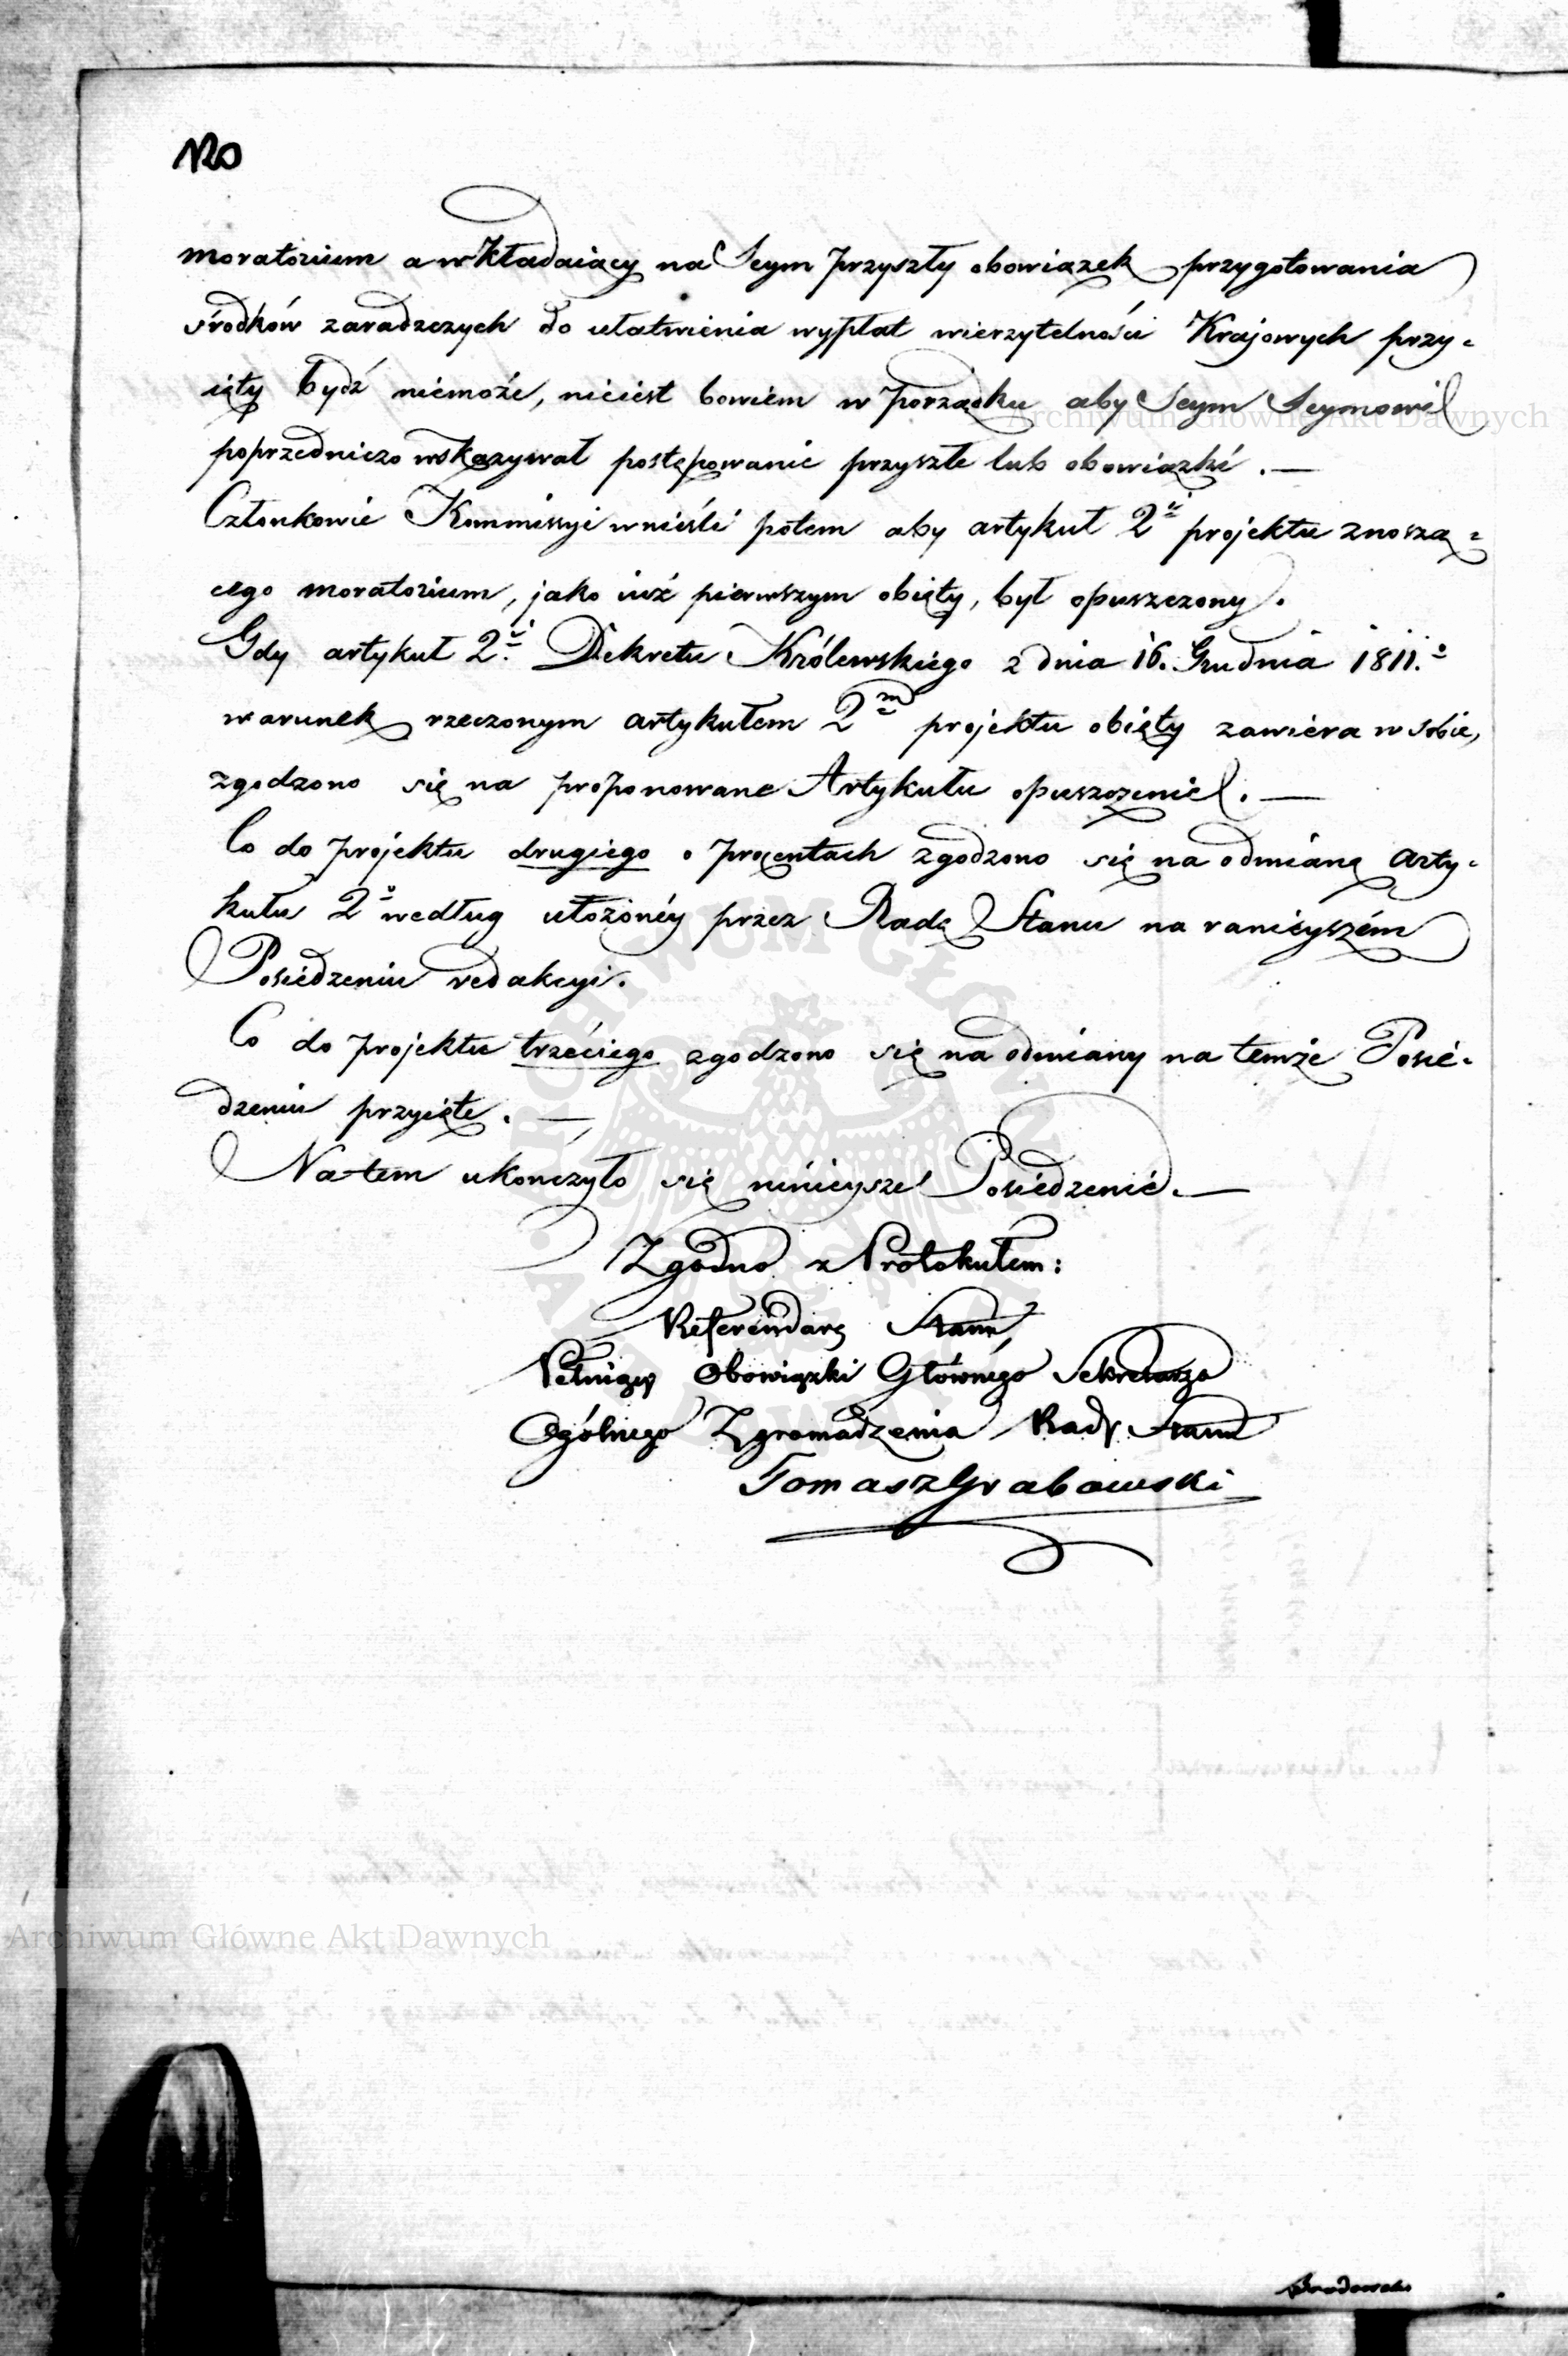 120
moratorium a wkładaiący na Seym przyszły obowiązek przygotowania
środków zaradczych do ułatwienia wypłat wierzytelności Krajowych przy-
ięty bydź niemoże, nieiest bowiem w porządku aby Seym Seymowi
poprzedniczo wskazywał postępowanie przyszłe lub obowiązki. —
Członkowie Kommissyi wnieśli potem aby artykuł 2i projektu znoszą-
cego moratorium, jako iuż pierwszym obięty, był opuszczony.
Gdy artykuł 2i Dekretu Królewskiego z dnia 16. Grudnia 1811.o
warunek rzeczonym artykułem 2m projektu obięty zawiéra w sobie,
zgodzono się na proponowane Artykułu opuszczenie. —
Co do projektu drugiego o procentach zgodzono się na odmianę arty-
kułu 2o według ułożonéy przez Radę Stanu na ranieyszém
Posiedzeniu redakcyi.
Co do projektu trzeciego zgodzono się na odmiany na temże Posie-
dzeniu przyięte. —
Na tem ukończyło się ninieysze Posiedzenie. —
Zgodno z Protokułem:
Referendarz Stanu,
Pełniący Obowiązki Głównego Sekretarza
Ogólnego Zgromadzenia Rady Stanu
Tomasz Grabowski
Brodowski
Archiwum Główne Akt Dawnych
Archiwum Główne Akt Dawnych